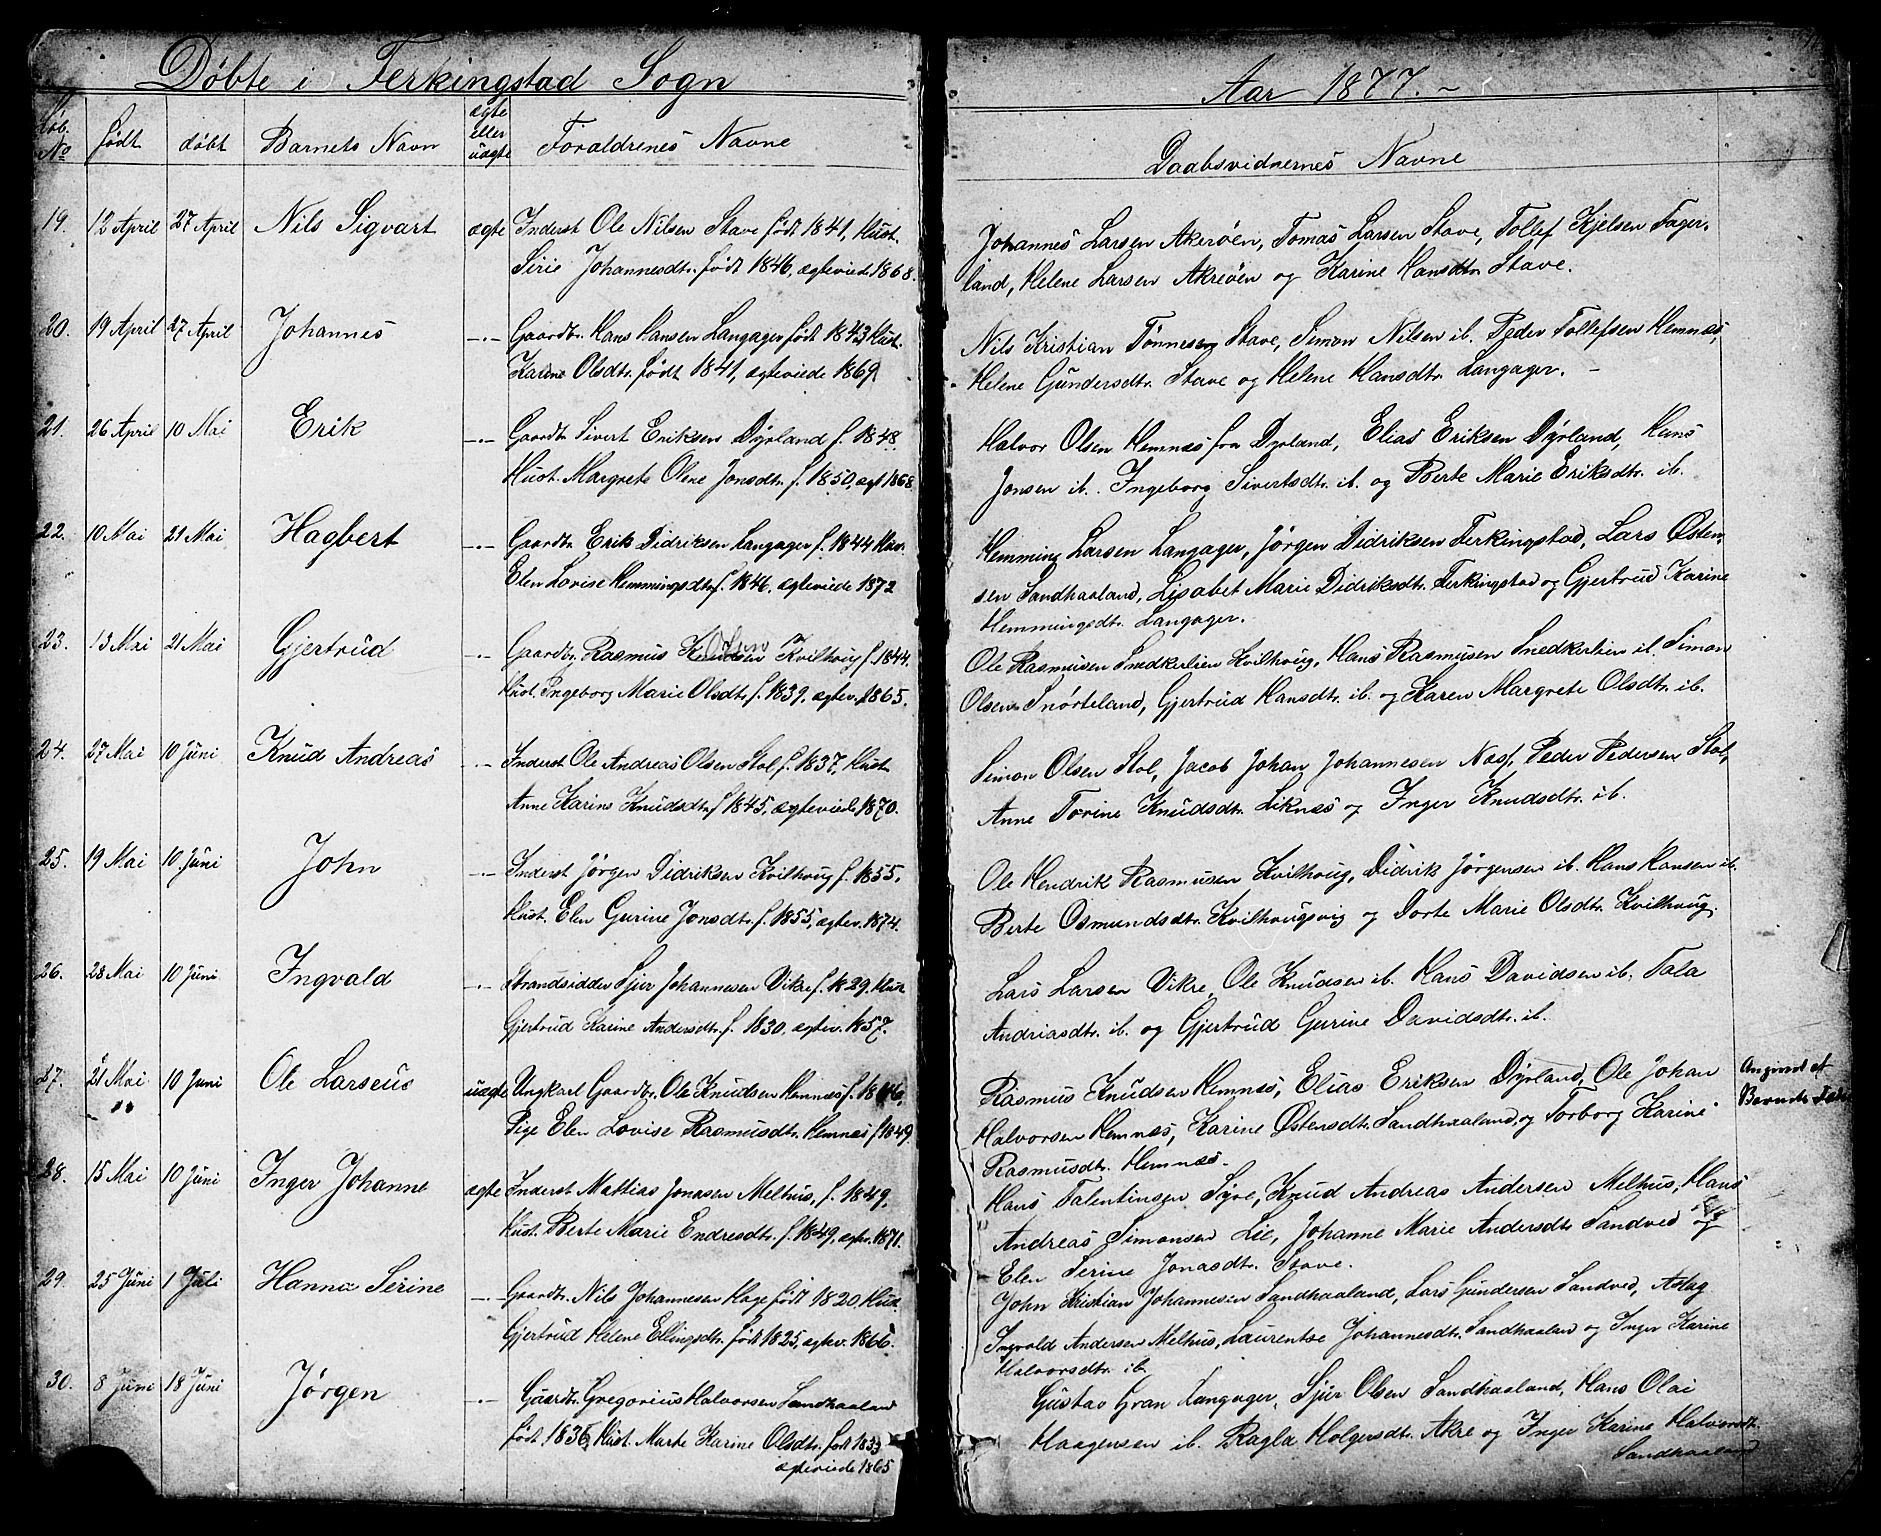 Døbte i Ferkingstad Sogn
Løb. No født døbt Barnets Navn ægte eller uægte Foraldrenes Navne
19. 12 April 27 April Nils Sigvart ægte Inderst Ole Nilsen Stave født 1841, Hust.
Sirie Johannesdtr. født 1846, ægteviede 1868.
20. 19 April 27 April Johannes —.— Gaardbr. Hans Hansen Langager født 1843 Hust.
Karine Olsdtr. født 1841, ægteviede 1869
21. 26 April 10 Mai Erik —.— Gaardbr. Sivert Eriksen Dÿrland f. 1848
Hust. Margrete Olene Jonsdtr. f. 1850, ægt 1868.
22. 10 Mai 21 Mai Hagbert —.— Gaardbr. Erik Didriksen Langager f. 1844 Hus.
Elen Lovise Hemmingsdtr f. 1846, ægteviede 1872
23. 13 Mai 21 Mai Gjertrud —.— Gaardbr. Rasmus Knudsen Olsen Kvilhoug f. 1844.
Hust. Ingeborg Marie Olsdtr. f. 1839. ægtev. 1865.
24. 27 Mai 10 Juni Knud Andreas —.— Inderst Ole Andreas Olsen Stol f. 1837, Hust
Anne Karine Knudsdtr f 1845, ægteviede 1870.
25. 19 Mai 10 Juni John —.— Inderst Jørgen Didriksen Kvilhoug f. 1855.
Hust. Elen Gurine Jonsdtr. f. 1855, ægtev. 1874.
26. 28 Mai 10 Juni Ingvald —.— Strandsidder Sjur Johannesen Vikre f. 1829. Hust
Gjertrud Karine Andersdtr. f. 1830. ægtev. 1857.
27. 21 Mai 10 Juni Ole Larseus uægte Ungkarl Gaardbr. Ole Knudsen Hemnæs f. 1846,
Pige Elen Lovise Rasmusdtr. Hemnæs f 1849
28. 15 Mai 10 Juni Inger Johanne ægte Inderst Mattias Jonasen Melhus, f. 1849,
Hust. Berte Marie Endresdtr. f. 1849, ægtev. 1871.
29. 25 Juni 1 Juli Hanna Serine —.— Gaardbr. Nils Johannesen Hage født 1820 Hus.
Gjertrud Helene Ellingsdtr. født 1825, ægtev. 1866.
30. 8 Juni 18 Juni Jørgen —.— Gaardbr. Gregorius Halvorsen Sandhaaland
født 1836, Hust. Marte Karine Olsdtr. født 1833
ægteviede 1865
Aar 1877.
Daabsvidnernes Navne
Johannes Larsen Akerøen, Tomas Larsen Stave, Tollef Kjelsen Fager-
land, Helene Larsen Akreøen og Karine Hansdtr. Stave.
Nils Kristian Tønnesen Stave, Simon Nilsen ib. Peder Tollefsen Hemnæs,
Helene Gundersdtr. Stave og Helene Hansdtr. Langager. —
Halvor Olsen Hemnæs fra Dyrland, Elias Eriksen Dÿrland, Hans
Jonsen ib. Ingeborg Sivertsdtr. ib. og Berte Marie Eriksdtr. ib.
Hemming Larsen Langager, Jørgen Didriksen Ferkingstad, Lars Østen-
sen Sandhaaland, Lisabet Marie Didriksdtr. Ferkingstad og Gjertrud Karine
Hemmingsdtr. Langager.
Ole Rasmusen Smedkerlien Kvilhoug, Hans Rasmusen Smedkerlien ib. Simon
Olsen Snørteland, Gjertrud Hansdtr. ib. og Karen Margrete Olsdtr. ib.
Simon Olsen Stol, Jacob Johan Johannesen Næs, Peder Pedersen Stol,
Anne Torine Knudsdtr. Liknæs og Inger Knudsdtr. ib.
Ole Hendrik Rasmusen Kvilhoug, Didrik Jørgensen ib. Hans Hansen ib.
Berte Osmundsdtr. Kvilhougsvig og Dorte Marie Olsdtr. Kvilhoug.
Lars Larsen Vikre, Ole Knudsen ib. Hans Davidsen ib. Tala
Andriasdtr. ib. og Gjertrud Gurine Davidsdtr. ib.
Rasmus Knudsen Hemnæs, Elias Eriksen Dÿrland, Ole Johan Angivet af
Halvorsen Hemnæs, Karine Østensdtr. Sandhaaland og Torborg Karine Barnets Fader
Rasmusdtr. Hemnæs.
Hans Talentinsen Syre, Knud Andreas Andersen Melhus, Hans
Andreas Simonsen Lie, Johanne Marie Andersdtr Sandved og
Elen Serine Jonasdtr. Stave.
John Kristian Johannesen Sandhaaland, Lars Gundersen Sandved, Aslag
Ingvald Andersen Melhus, Laurentse Johannesdtr. Sandhaaland og Inger Karine
Halvorsdtr. ib.
Gustav Gran Langager, Sjur Olsen Sandhaaland, Hans Olai
Haagensen ib. Ragla Holgersdtr. Akre og Inger Karine Halvorsdtr.
Sandhaaland